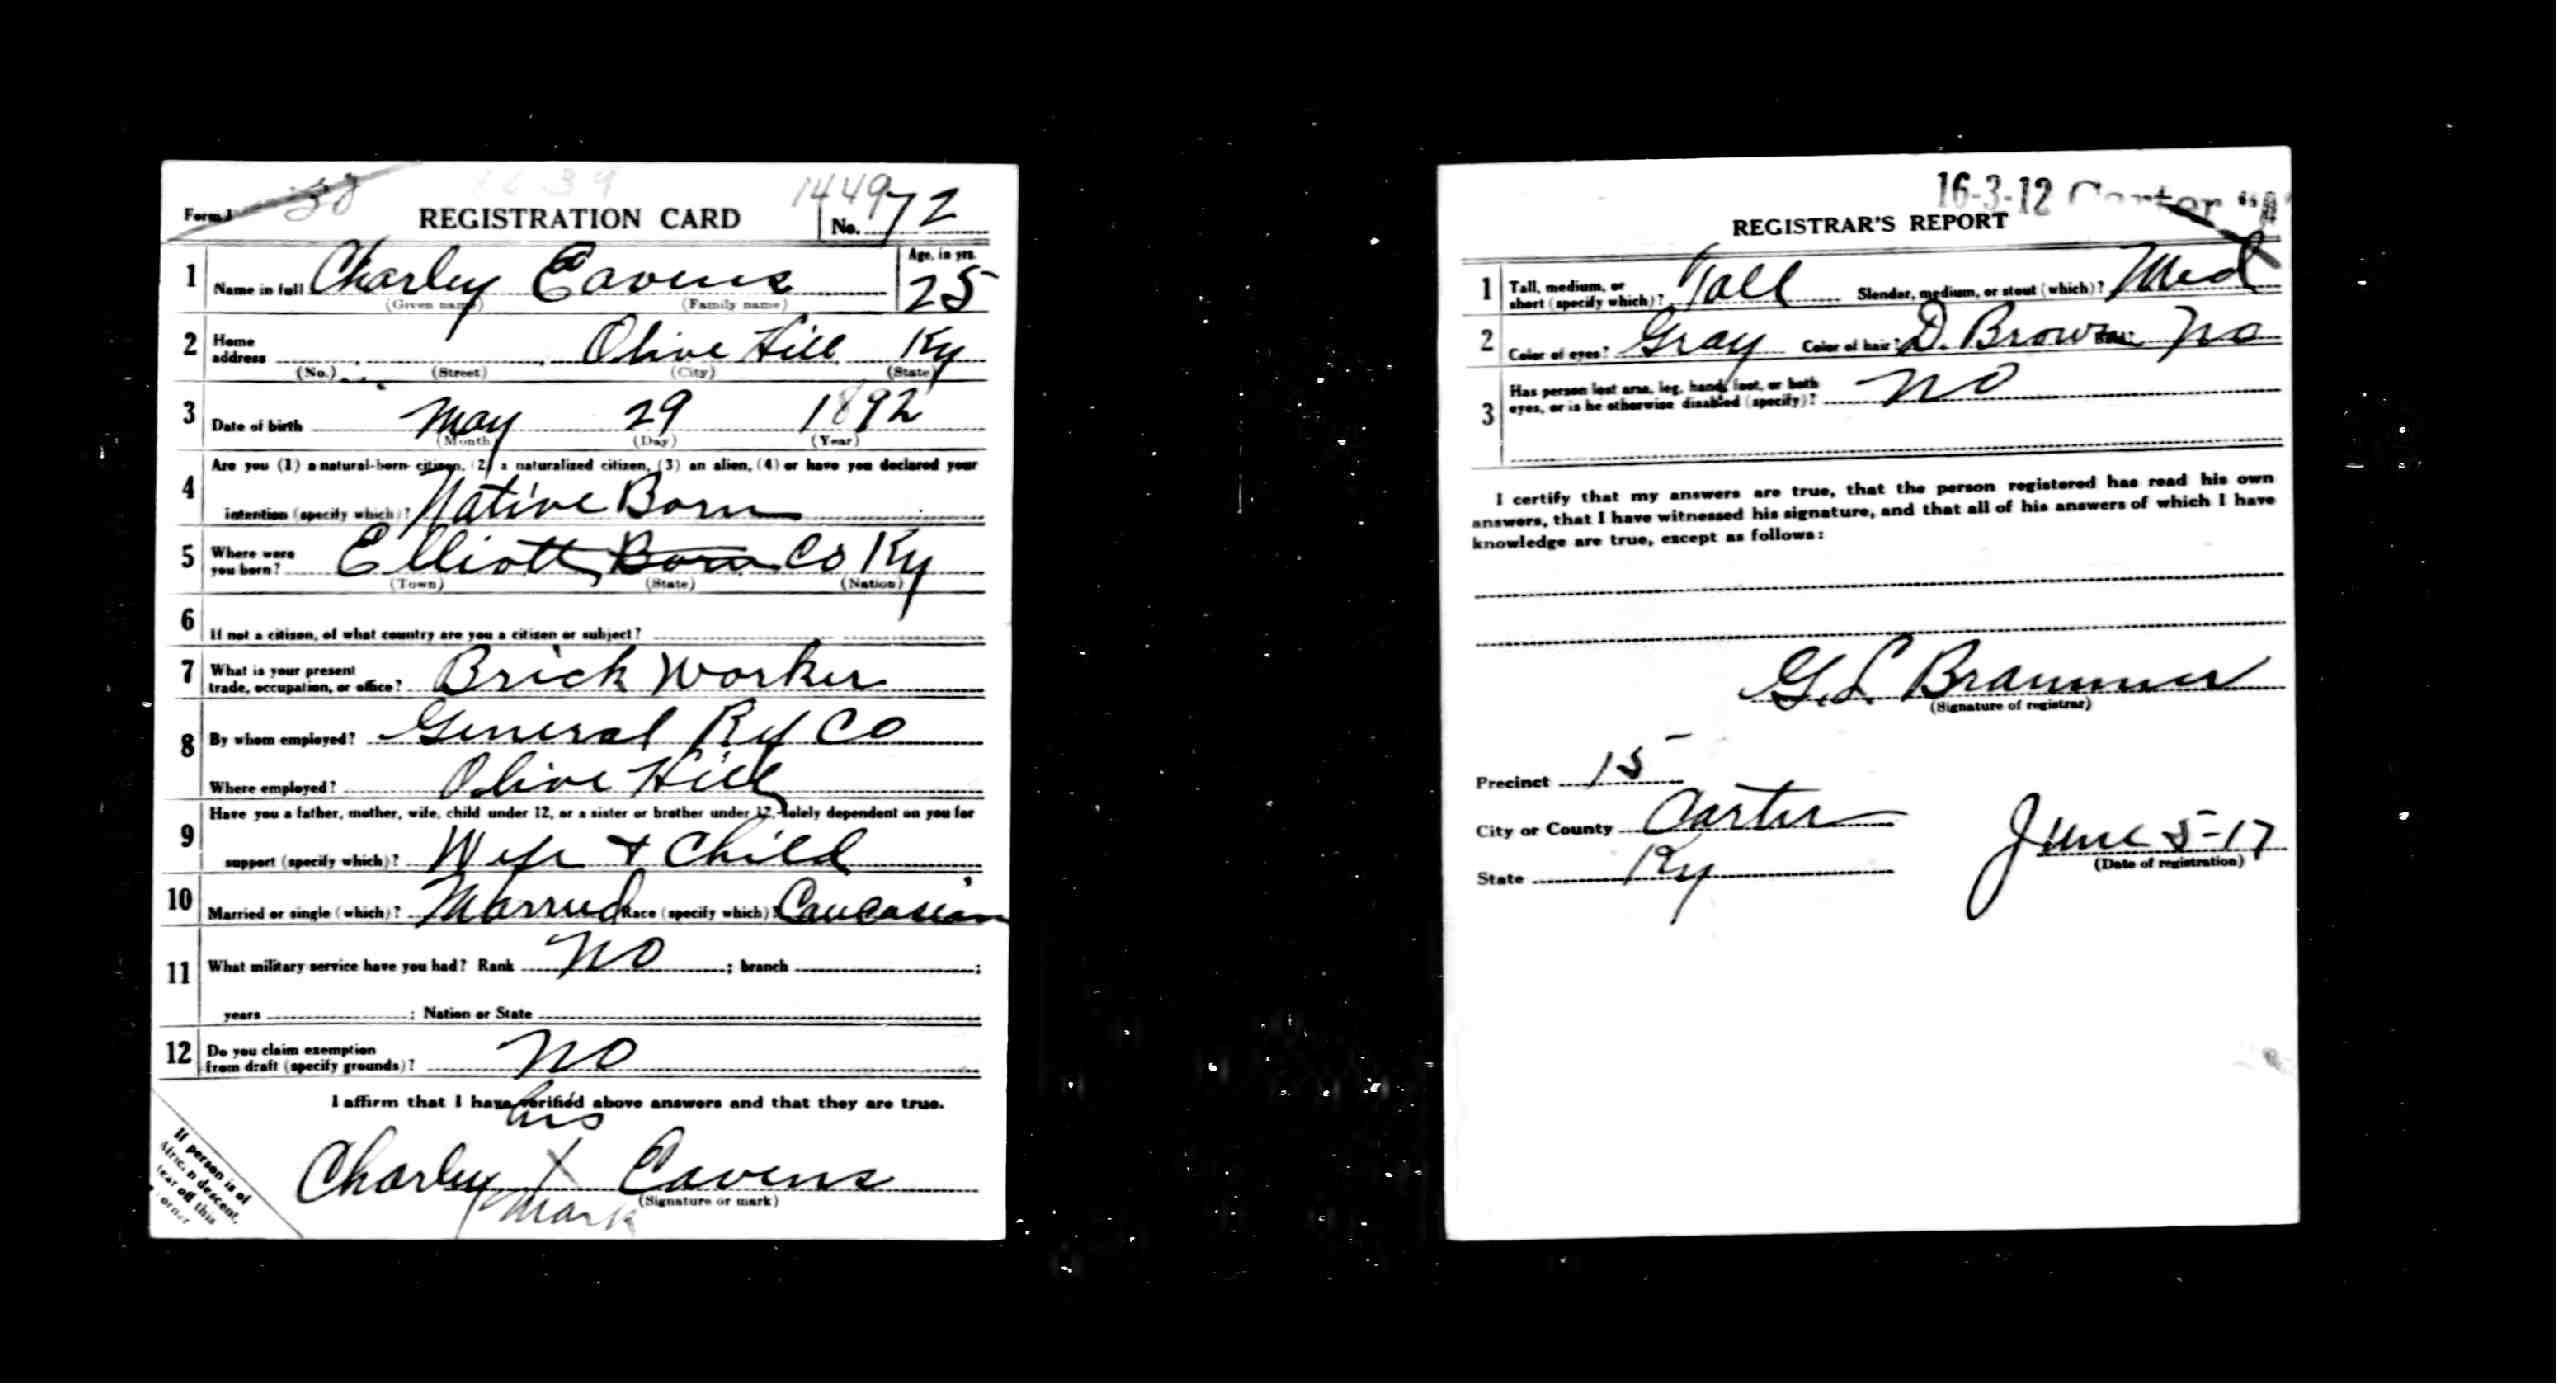 Form 1 38 1639 1449
REGISTRATION CARD No. 72
1 Name in full Charley Eavens Age, in yrs. 25
(Given name) (Family name)
2 Home address Olive Hill Ky
(No.) (Street) (City) (State)
3 Date of birth May 29 1892
(Month) (Day) (Year)
4 Are you (1) a natural-born citizen, (2) a naturalized citizen, (3) an alien, (4) or have you declared your
intention (specify which)? Native Born
5 Where were you born? Elliott Born Co Ky
(Town) (State) (Nation)
6 If not a citizen, of what country are you a citizen or subject?
7 What is your present trade, occupation, or office? Brick Worker
8 By whom employed? General Ry Co
Where employed? Olive Hill
9 Have you a father, mother, wife, child under 12, or a sister or brother under 12, solely dependent on you for
support (specify which)? Wife + Child
10 Married or single (which)? Married Race (specify which)? Caucasian
11 What military service have you had? Rank No ; branch ;
years ; Nation or State
12 Do you claim exemption from draft (specify grounds)? No
I affirm that I have verified above answers and that they are true.
his
Charley X Eavens
mark (Signature or mark)
If person is of
African descent,
tear off this
corner
16-3-12 Carter "A"
REGISTRAR'S REPORT
1 Tall, medium, or short (specify which)? Tall Slender, medium, or stout (which)? Med
2 Color of eyes? Gray Color of hair? D. Brown No
3 Has person lost arm, leg, hand, foot, or both
eyes, or is he otherwise disabled (specify)? No
I certify that my answers are true, that the person registered has read his own
answers, that I have witnessed his signature, and that all of his answers of which I have
knowledge are true, except as follows:
G. L. Brammer
(Signature of registrar)
Precinct 15
City or County Carter
State Ky
June 5-17
(Date of registration)